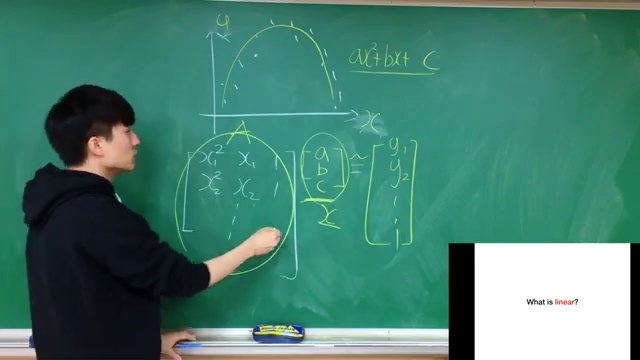 y
ax²+bx+c
x
A
x₁² x₁ 1
x₂² x₂ 1
a
b
c
x
≈
y₁
y₂
What is linear?